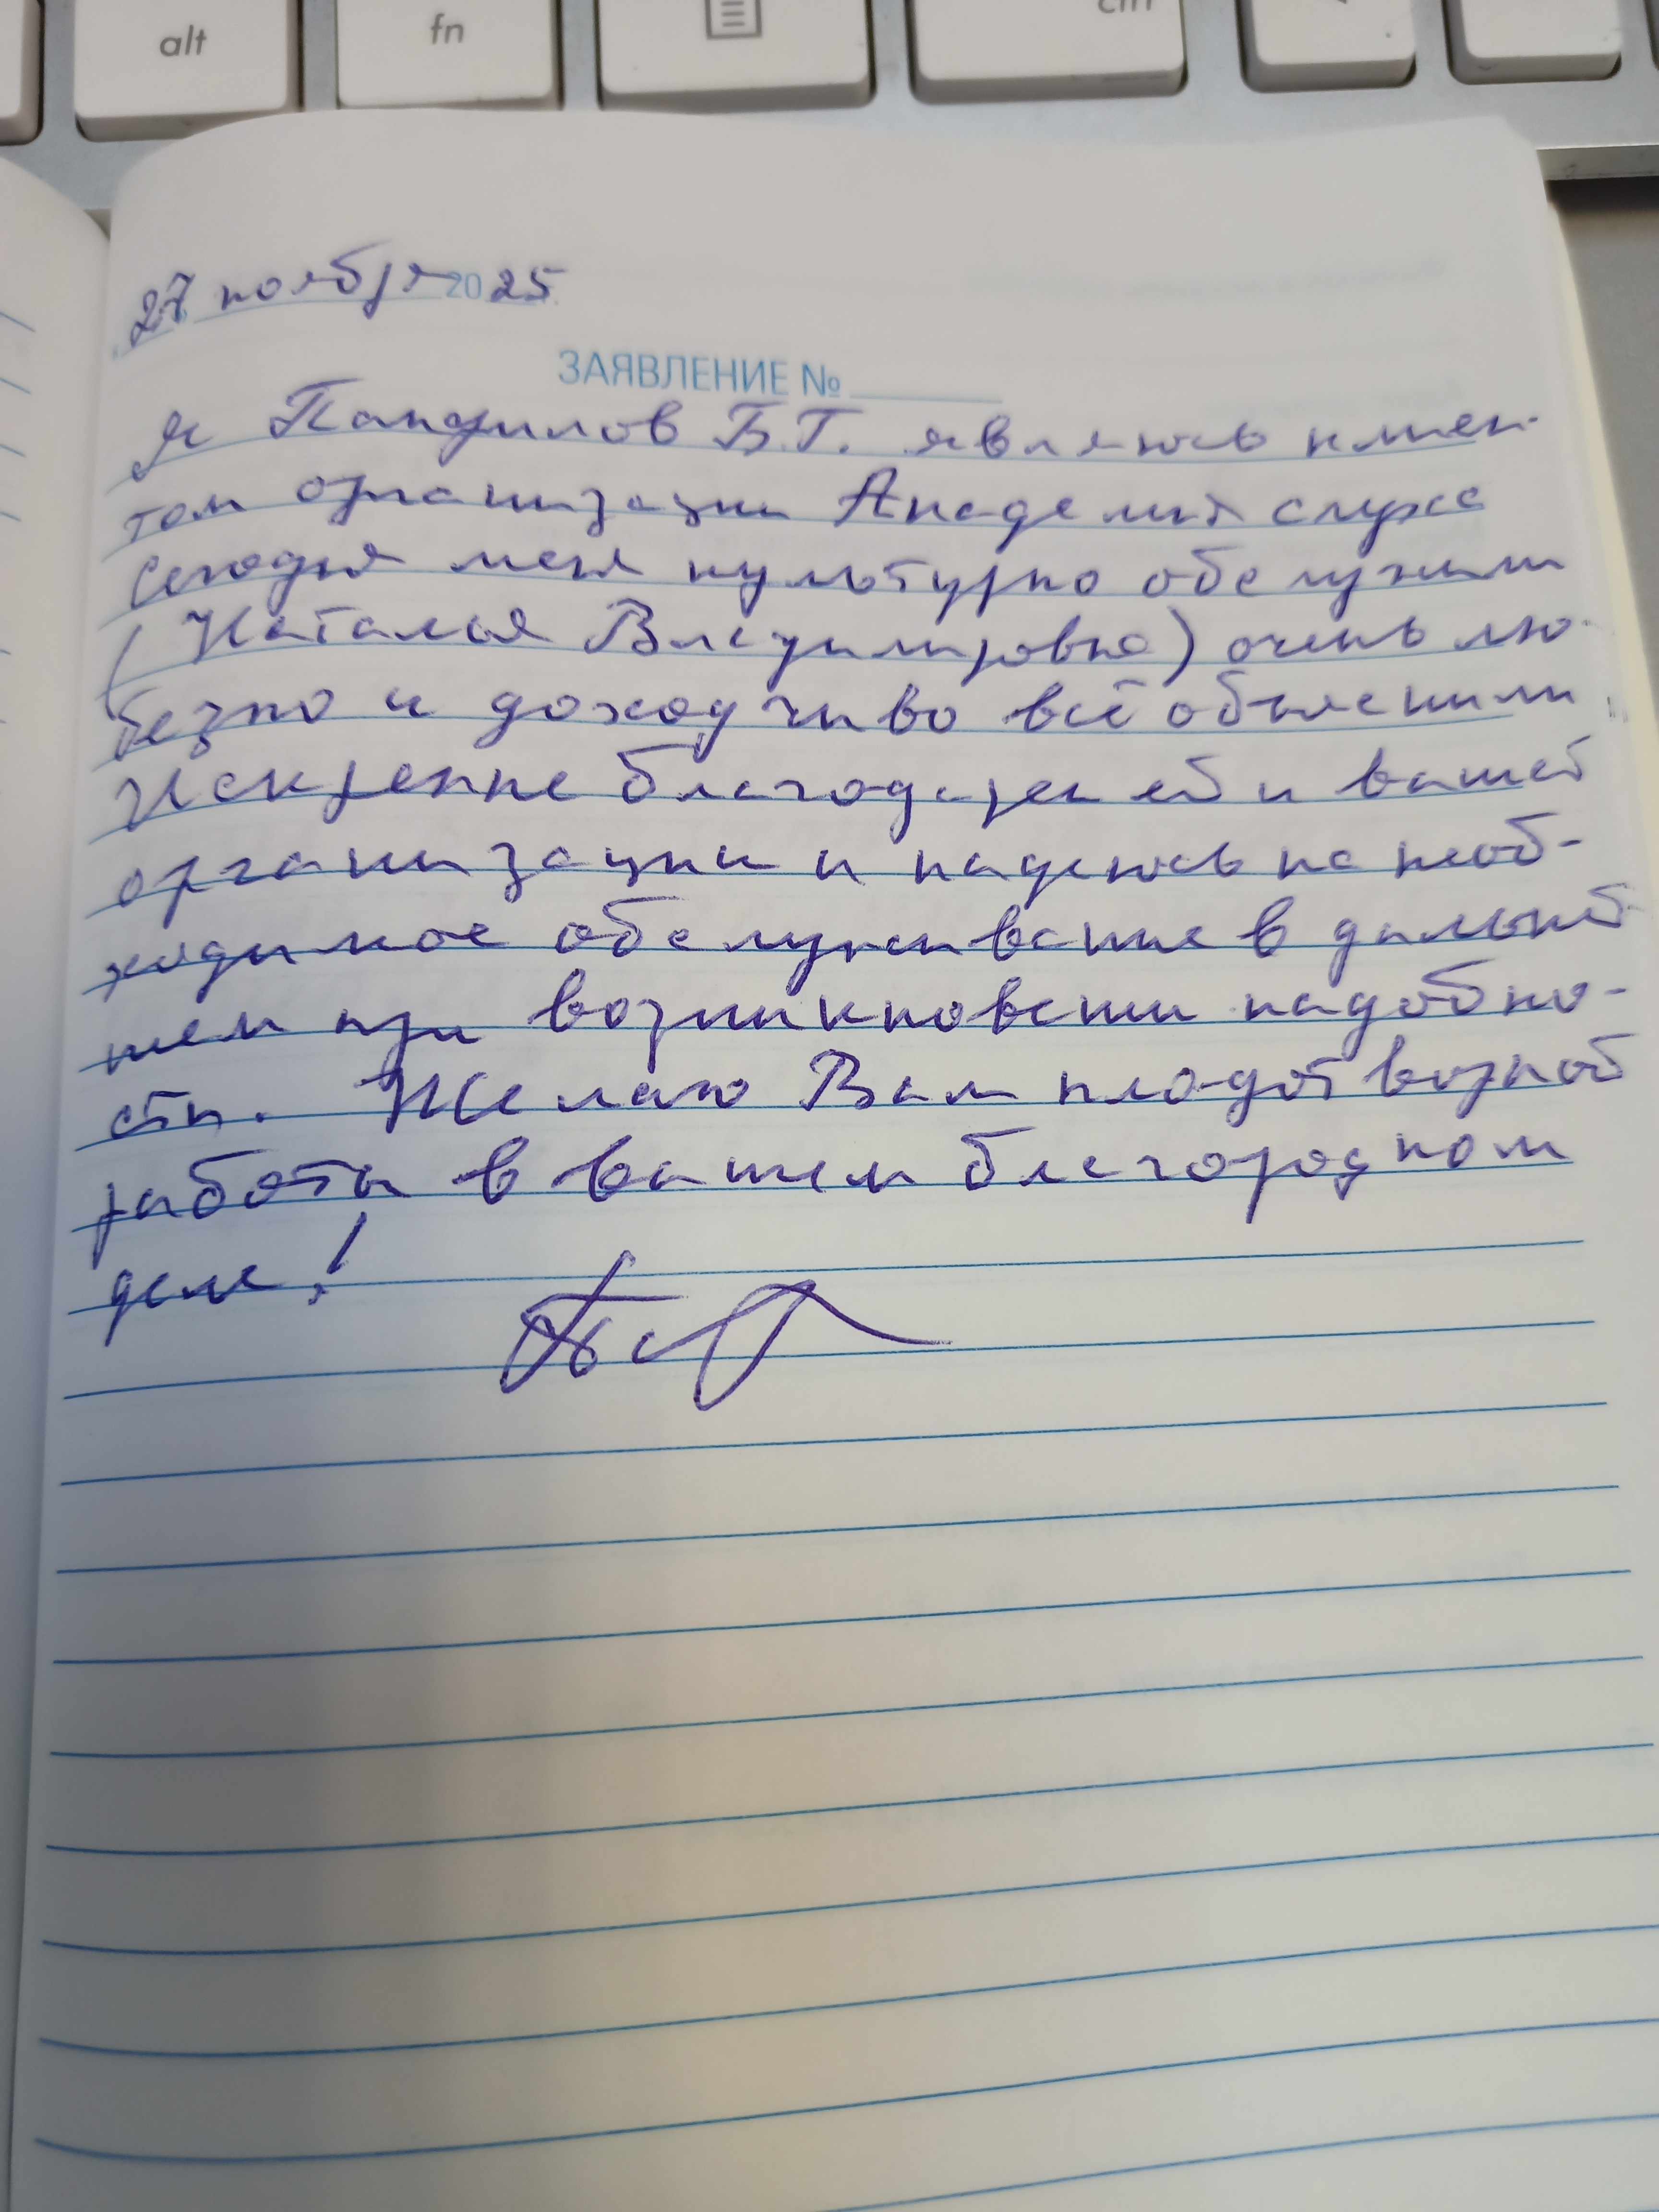 alt fn
27 ноября 2025
ЗАЯВЛЕНИЕ №
Я Панфилов Б.Г. являюсь клиен-
том организации Академия слуха
Сегодня меня культурно обслужили
(Наталья Владимировна) очень лю-
безно и доходчиво всё объяснили
Искренне благодарен ей и вашей
организации и надеюсь на необ-
ходимое обслуживание в дальней-
шем при возникновении надобно-
сти. Желаю Вам плодотворной
работы в вашем благородном
деле!